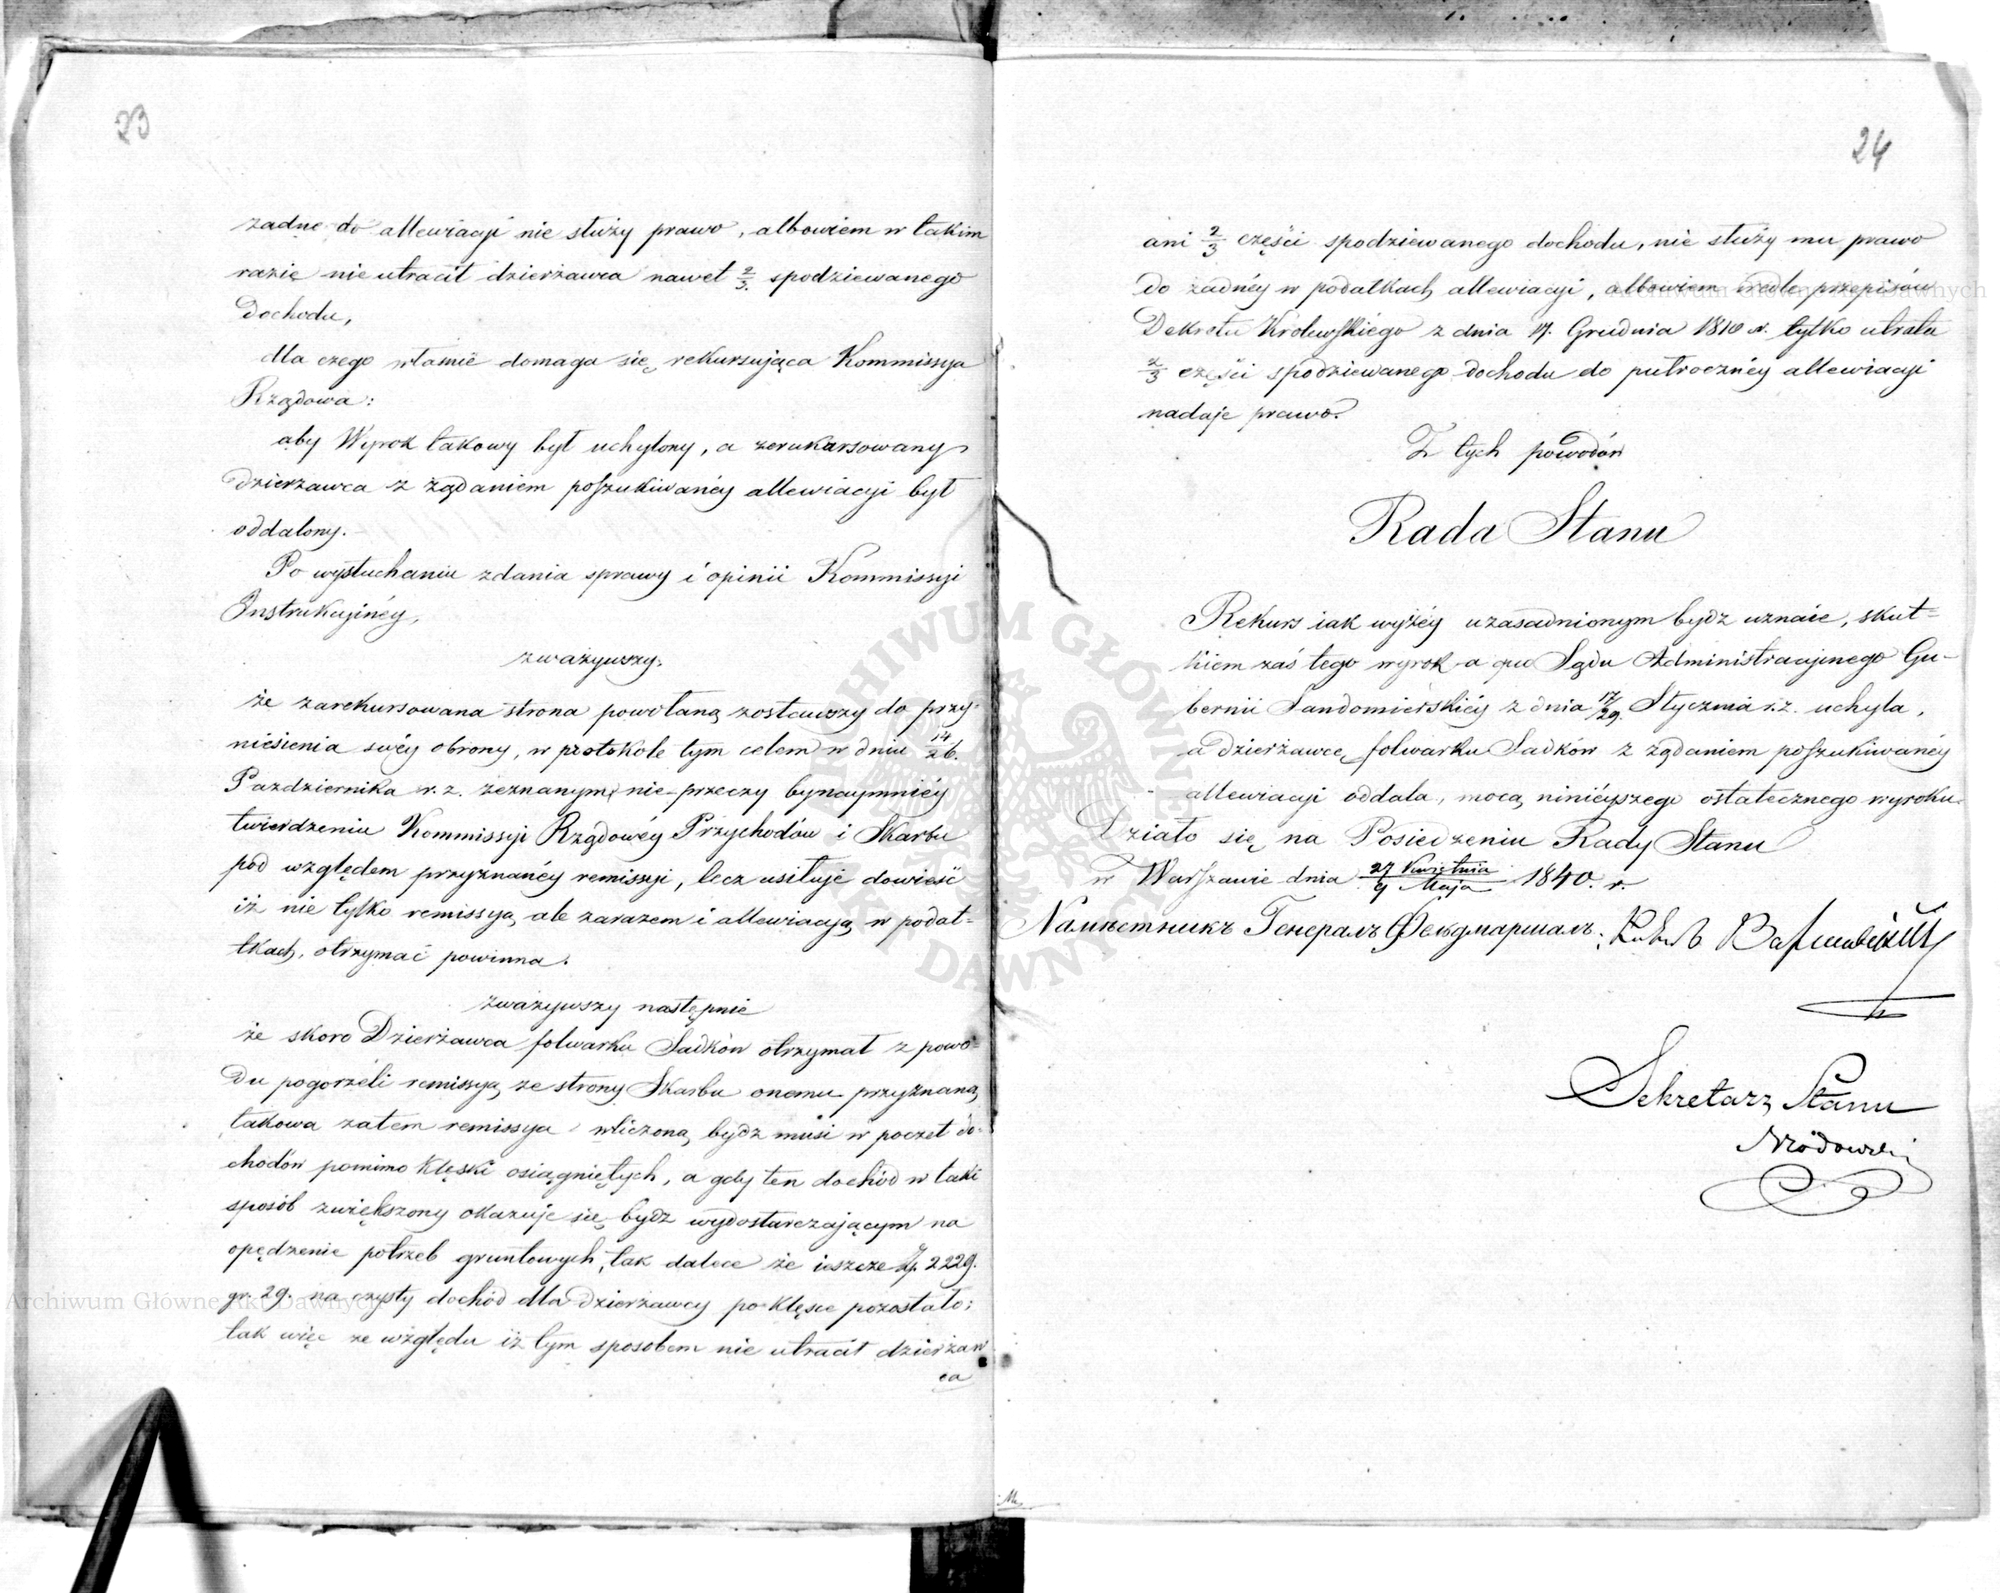 23
żadne do allewiacyi nie służy prawo, albowiem w takim
razie nie utracił dzierżawca nawet 2/3. spodziewanego
dochodu,
dla czego właśnie domaga się rekursująca Kommissya
Rządowa:
aby Wyrok takowy był uchylony, a zerukursowany
dzierżawca z żądaniem poszukiwanéy allewiacyi był
oddalony.
Po wysłuchaniu zdania sprawy i opinii Kommissyi
Instrukcyinéy,
zważywszy:
że zarekursowana strona powołaną zostawszy do przy-
niesienia swéy obrony, w protokole tym celem w dniu 14/26.
Października r. z. zeznanym, nie przeczy bynaymniéy
twierdzeniu Kommissyi Rządowéy Przychodów i Skarbu
pod względem przyznanéy remissyi, lecz usiłuje dowieść
iż nie tylko remissyą, ale zarazem i allewiacyą w podat-
tkach, otrzymać powinna.
zważywszy następnie
że skoro Dzierżawca folwarku Sadków otrzymał z powo-
du pogorzeli remissyą ze strony Skarbu onemu przyznaną,
takowa zatem remissya wliczoną bydź musi w poczet do-
chodów pomimo klęski osiągniętych, a gdy ten dochód w taki
sposób zwiększony okazuje się bydź wydostarczającym na
opędzenie potrzeb gruntowych, tak dalece że ieszcze Zp. 2229.
gr. 29. na czysty dochód dla Dzierżawcy po klęsce pozostało;
tak więc ze względu iż tym sposobem nie utracił dzierżaw
ca
24
ani 2/3 części spodziewanego dochodu, nie służy mu prawo
do żadnéy w podatkach allewiacyi, albowiem wedle przepisów
Dekretu Królewskiego z dnia 17. Grudnia 1810 r. tylko utrata
2/3 części spodziewanego dochodu do półrocznéy allewiacyi
nadaje prawo.
Z tych powodów
Rada Stanu
Rekurs iak wyżéy uzasadnionym bydz uznaie, skut-
kiem zaś tego wyrok a quo Sądu Administracyjnego Gu-
bernii Sandomierskiéy z dnia 17/29. Stycznia r. z. uchyla,
a dzierżawcę folwarku Sadków z żądaniem poszukiwanéy
allewiacyi oddala, mocą ninieyszego ostatecznego wyroku.
Działo się na Posiedzeniu Rady Stanu
w Warszawie dnia 27 Kwietnia / 9 Maja 1840. r.
Намѣстникъ Генералъ Фельдмаршалъ: Князь Варшавскій
Sekretarz Stanu
Brzozowski
Archiwum Główne Akt Dawnych